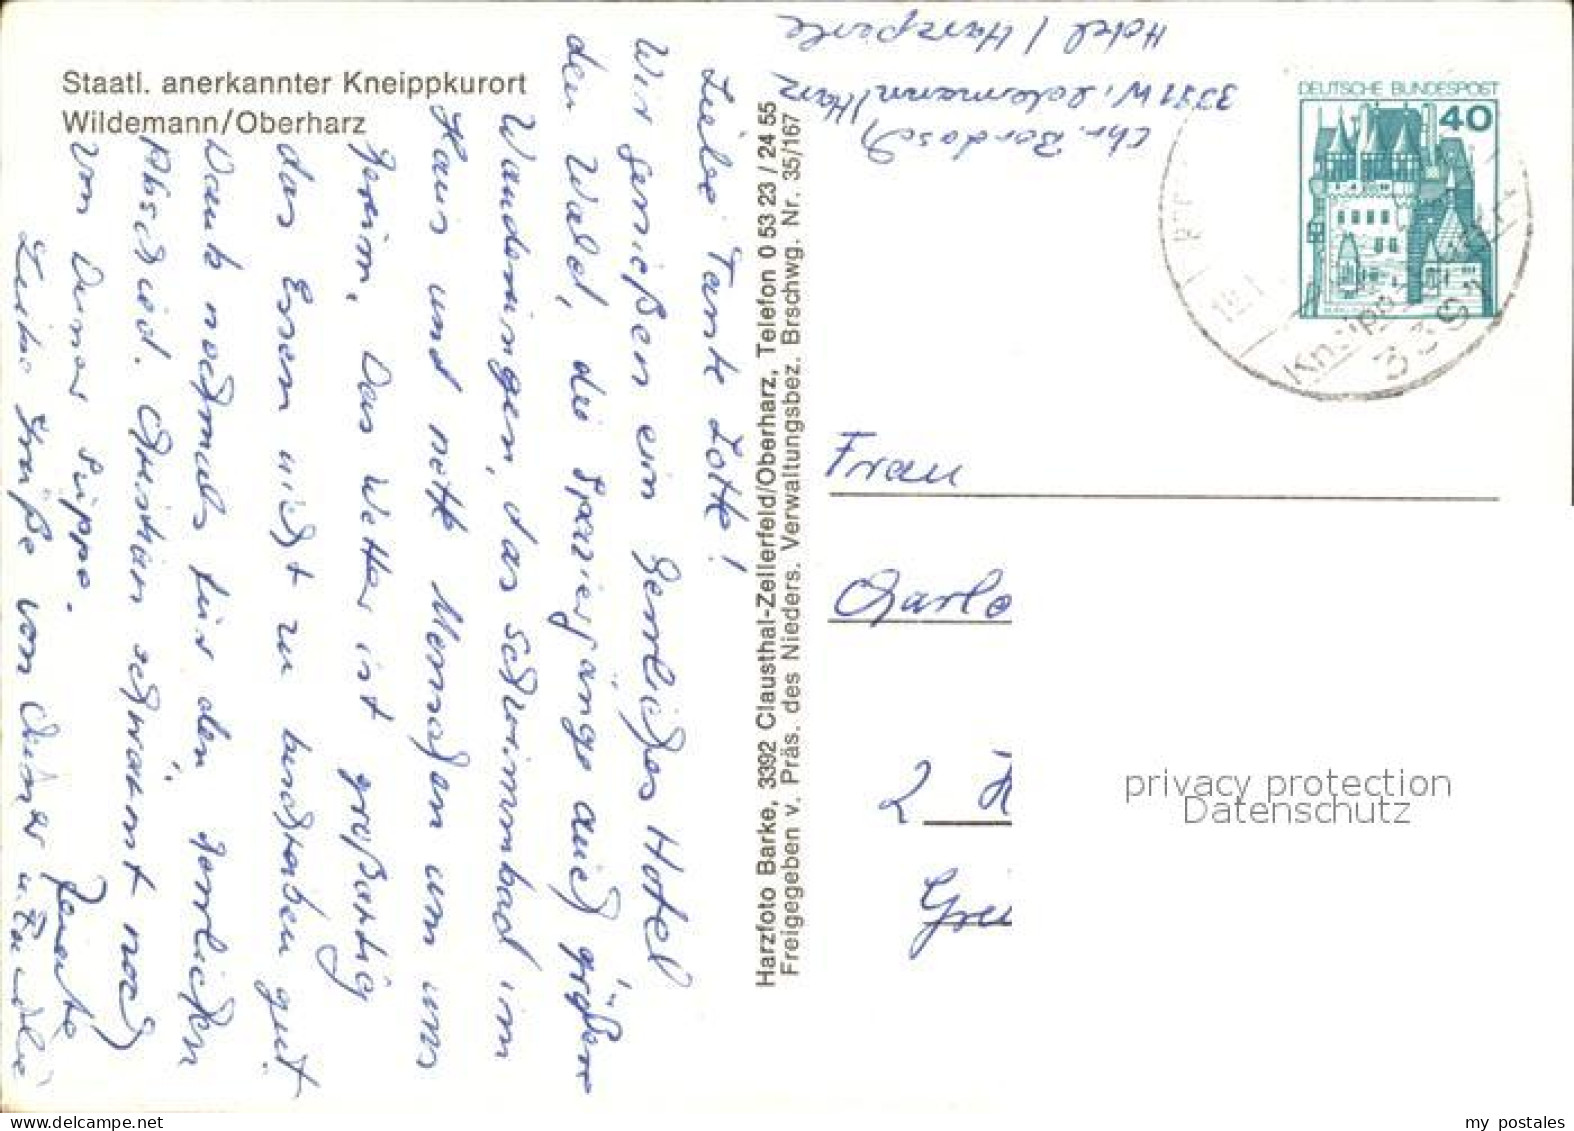 Staatl. anerkannter Kneippkurort
Wildemann/Oberharz
Liebe Tante Lotte!
Wir genießen ein herrliches Hotel
den Wald, die Spaziergänge auch größere
Wanderungen, das Schwimmbad im
Haus und nette Menschen um uns
herum. Das Wetter ist großartig
das Essen nicht zu
Dank nochmals für den herrlichen
Abschied. Christian schwärmt noch
von Deiner Suppe.
Liebe Grüße von Deiner
Renate
Harzfoto Barke, 3392 Clausthal-Zellerfeld/Oberharz, Telefon 0 53 23 / 24 55
Freigegeben v. Präs. des Nieders. Verwaltungsbez. Brschwg. Nr. 35/167
Chr. Bordasch
Wildemann/Harz
Hotel Harzperle
DEUTSCHE BUNDESPOST
40
Kneipp
Frau
Charlo
2
privacy protection
Datenschutz
my postales
www.delcampe.net